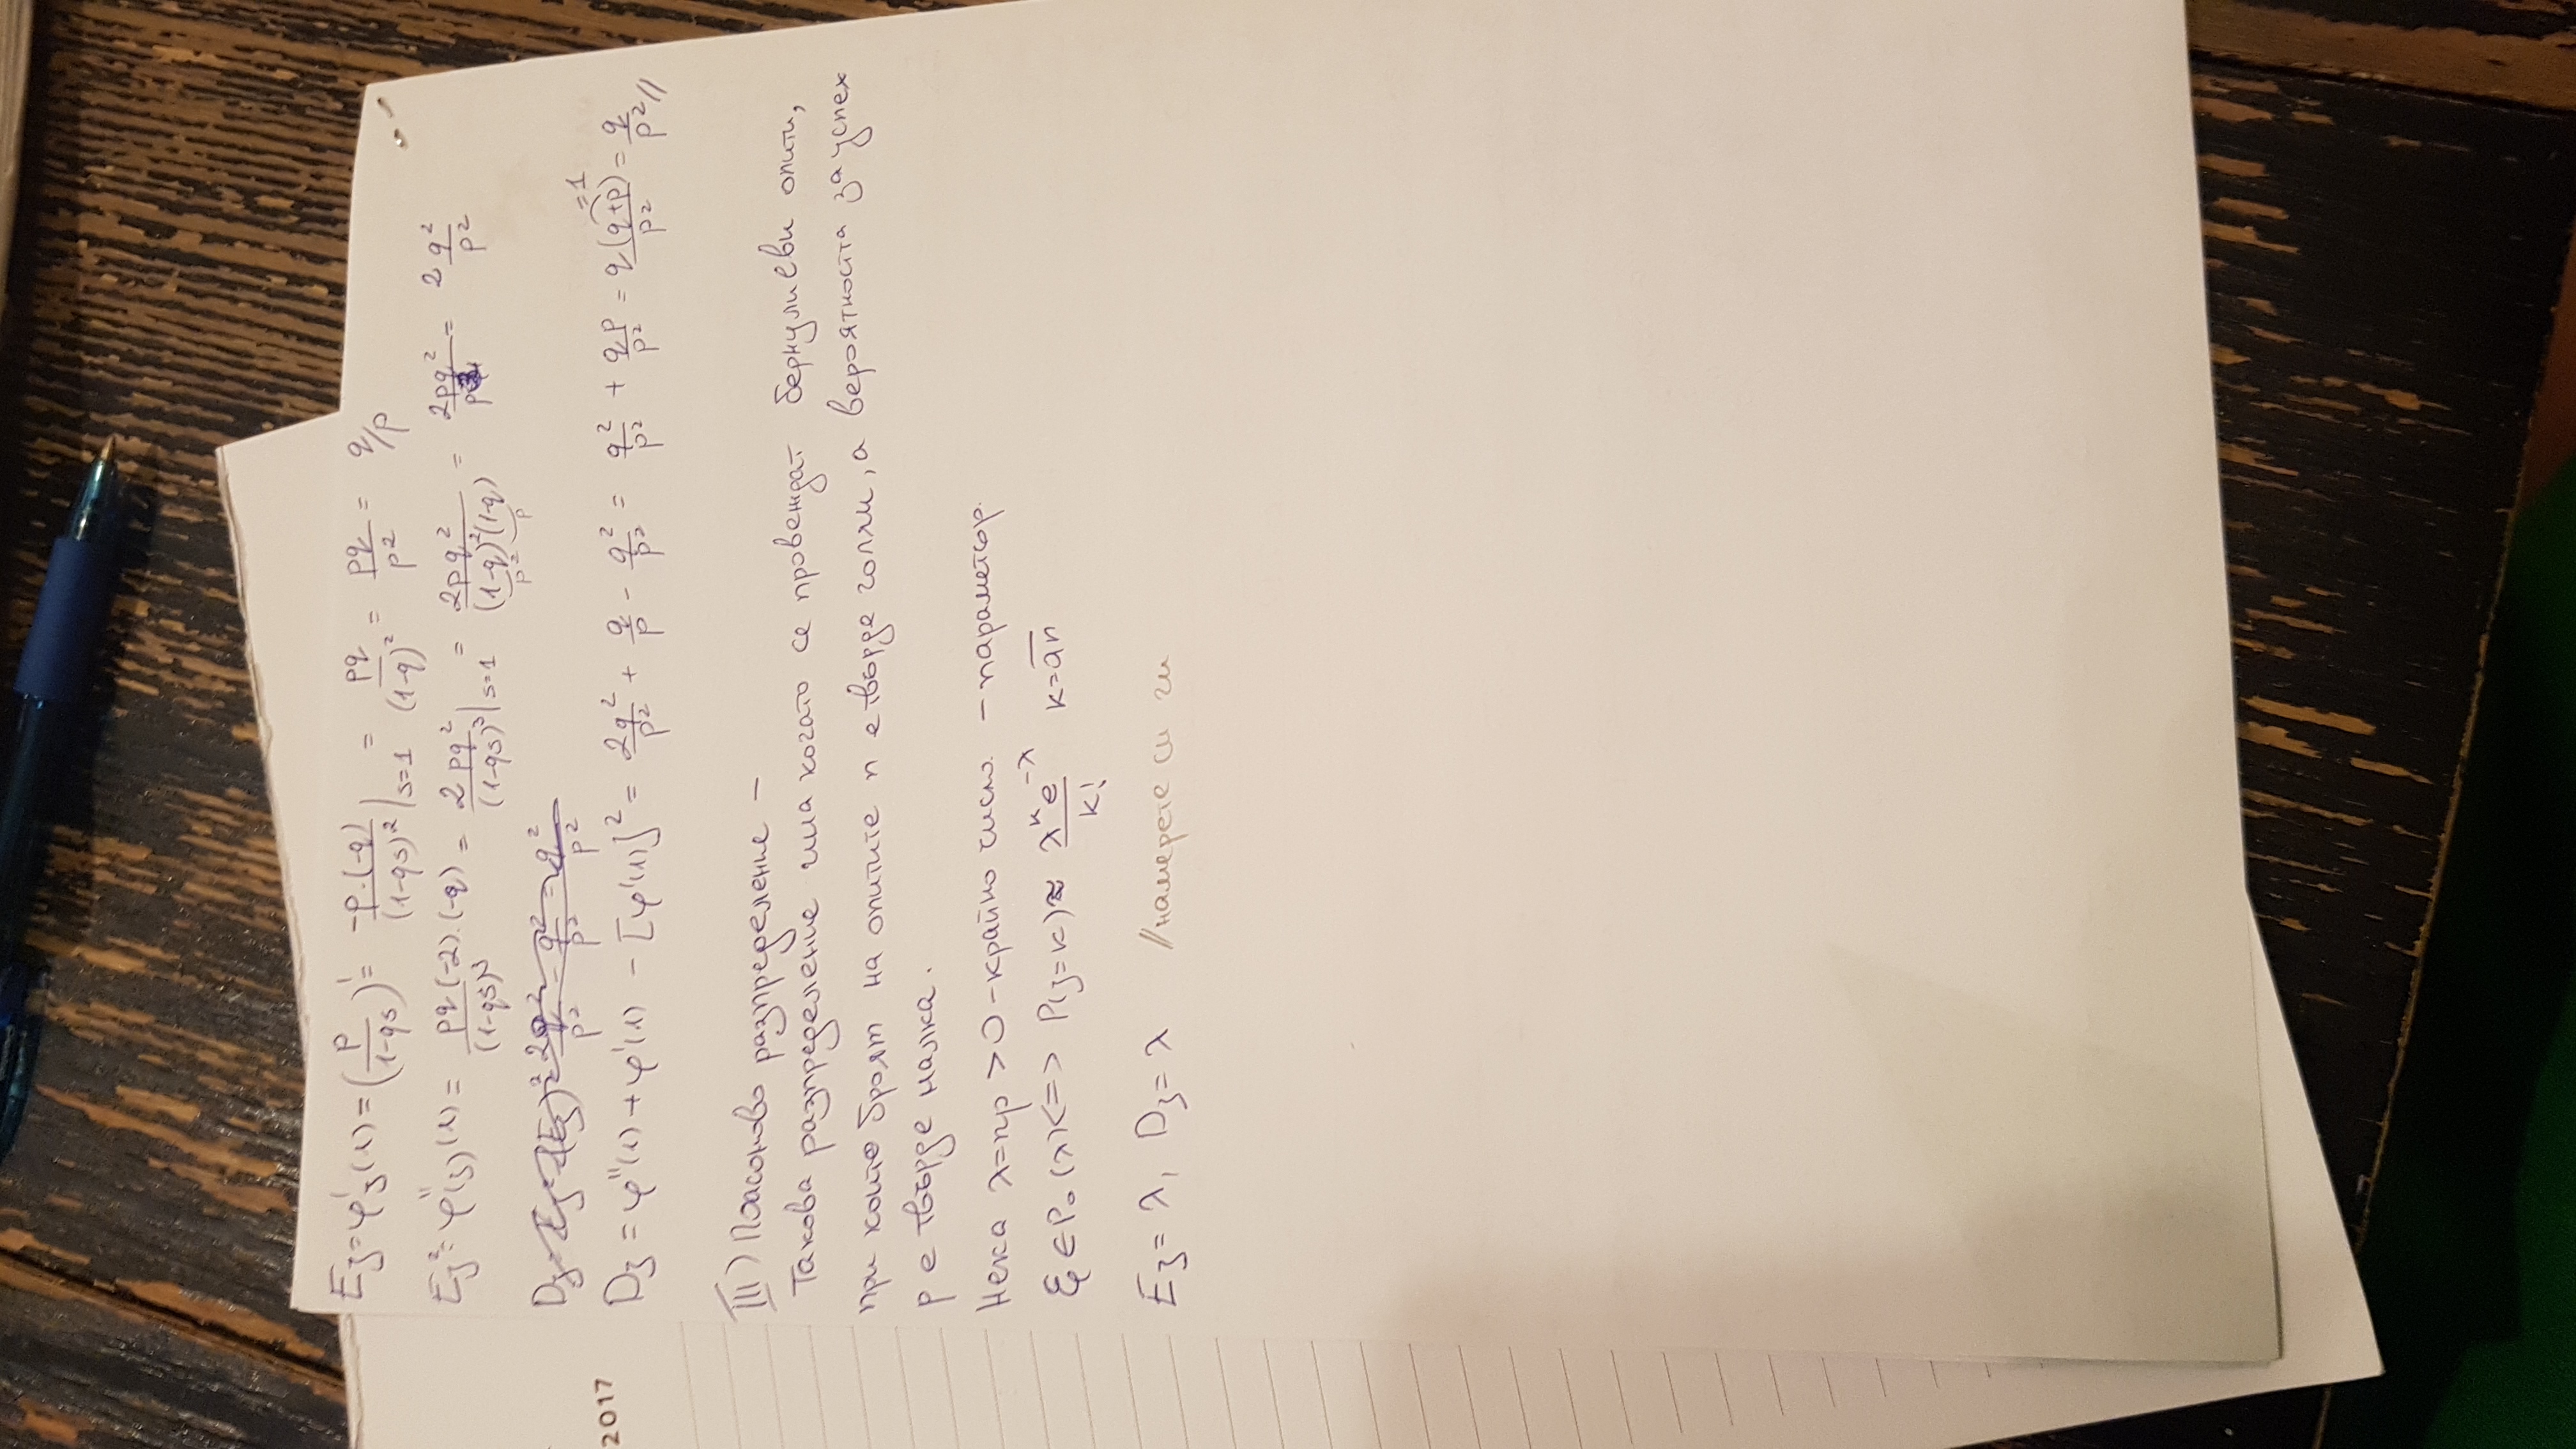 Eξ = φ'ξ(1) = (p/(1-qs))' = -p.(-q)/(1-qs)² |s=1 = pq/(1-q)² = pq/p² = q/p
Eξ² = φ''(ξ)(1) = pq(-2).(-q)/(1-qs)³ = 2pq²/(1-qs)³ |s=1 = 2pq²/(1-q)²(1-q) = 2pq²/p³ = 2q²/p²
p² p
Dξ = Eξ² - (Eξ)² = 2q²/p² - q²/p² = q²/p²
=1
2017
Dξ = φ''(1) + φ'(1) - [φ'(1)]² = 2q²/p² + q/p - q²/p² = q²/p² + qp/p² = q(q+p)/p² = q/p² //
III) Поасоново разпределение -
Такова разпределение има когато се провеждат бернулиеви опити,
при които броят на опитите n е твърде голям, а вероятността за успех
p е твърде малка.
Нека λ=np >0 - крайно число. - параметър.
ξ ∈ Po(λ) <=> P(ξ=k) ≈ λᵏe^-λ/k! k=0,n
Eξ = λ, Dξ = λ //намерете си ги